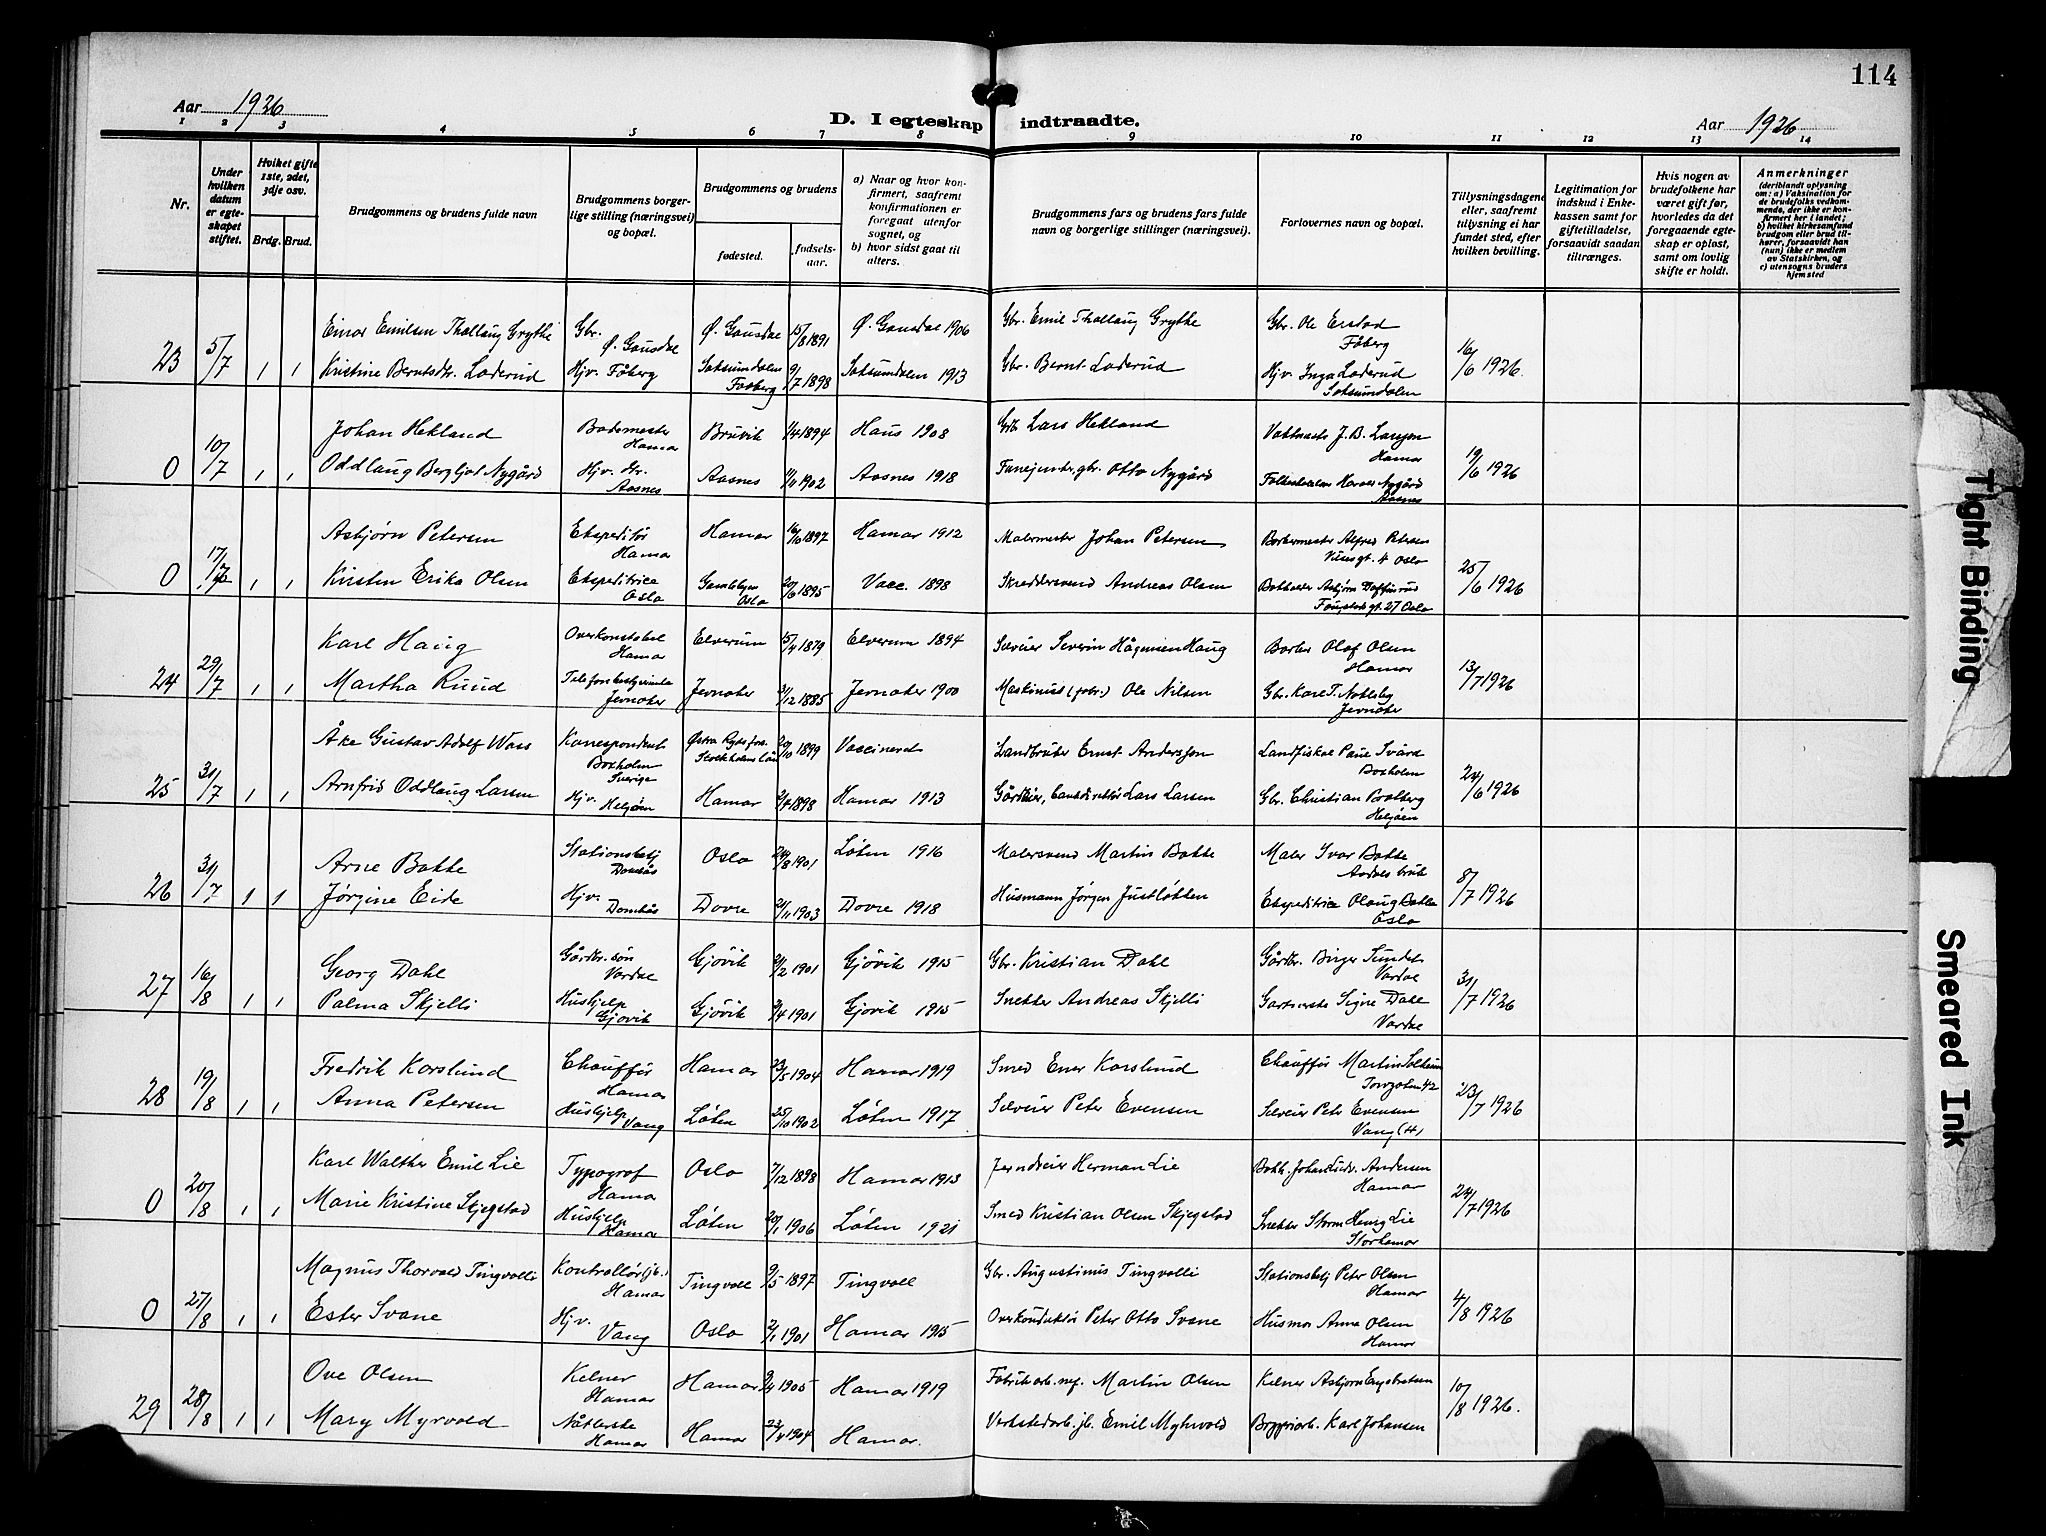 114
Aar 1926
D. I egteskap indtraadte.
Aar 1926
1 2 3 4 5 6 7 8 9 10 11 12 13 14
Nr.
Under hvilken datum er egteskapet stiftet.
Hvilket gifte 1ste, 2det, 3dje osv.
Brdg. Brud.
Brudgommens og brudens fulde navn
Brudgommens borgerlige stilling (næringsvei) og bopæl.
Brudgommens og brudens
fødested.
fødselsaar.
a) Naar og hvor konfirmert, saafremt konfirmationen er foregaat utenfor sognet, og
b) hvor sidst gaat til alters.
Brudgommens fars og brudens fars fulde navn og borgerlige stillinger (næringsvei).
Forlovernes navn og bopæl.
Tillysningsdagene eller, saafremt tilysning ei har fundet sted, efter hvilken bevilling.
Legitimation for indskud i Enkekassen samt for giftetilladelse, forsaavidt saadan tiltrænges.
Hvis nogen av brudefolkene har været gift før, hvorledes da det foregaaende egteskap er opløst, samt om lovlig skifte er holdt.
Anmerkninger
(deriblandt oplysning om: a) Vaksination for de brudefolks vedkommende, der ikke er konfirmert her i landet; b) hvilket kirkesamfund brudgom eller brud tilhører, forsaavidt han (hun) ikke er medlem av Statskirken, og c) utensogns bruders hjemsted
23 5/7 1 1 Einar Emilsen Thallaug Grythe Gbr. Ø. Gausdal Ø. Gausdal 15/8 1891 Ø. Gausdal 1906 Gbr. Emil Thallaug Grythe Gbr. Ole Enstad Fåberg 16/6 1926.
Kristine Berntsdtr. Laderud Hjv. Fåberg Saksumdalen Faaberg 9/7 1898 Saksumdalen 1913 Gbr. Bernt Laderud Hjv. Inga Laderud Saksumdalen
0 10/7 1 1 Johan Hekland Bademester Hamar Bruvik 1/4 1894 Haus 1908 Gbr. Lars Hekland J. B. Larsen Hamar 19/6 1926
Oddlaug Bergljot Nygård Hjv. Gr. Aasnes Aasnes 1/11 1902 Aasnes 1918 gbr. Otto Nygård Nygård Aasnes
0 17/7 1 1 Asbjørn Petersen Ekspeditør Hamar Hamar 16/10 1897 Hamar 1912 Malermester Johan Petersen Barbermester Alfred Petersen 4 Oslo 25/6 1926
Kirsten Erika Olsen Ekspeditrice Oslo Gamlebyen Oslo 20/6 1895 Vacc. 1898 Skreddersvend Andreas Olsen Bokholder Asbjørn gt. 27 Oslo
24 29/7 1 1 Karl Haug Overkonstabel Hamar Elverum 15/4 1879 Elverum 1894 Selveier Severin Hågensen Haug Barber Olaf Olsen Hamar 13/7 1926
Martha Ruud Telefonbestyrerinde Jevnaker Jevnaker 3/12 1885 Jevnaker 1900 Maskinist (for.) Ole Nilsen Gbr. Karl T. Nøkleby Jevnaker
25 31/7 1 1 Åke Gustav Adolf Wass Korrespondent Boxholm Sverige Østra Ryds fors. Stockholms län 20/10 1899 Vaccinerad Landbruker Ernst Andersson Landfiskal Paul Svärd Boxholm 24/6 1926
Arnfrid Oddlaug Larsen Hjv. Helgøen Hamar 2/4 1898 Hamar 1913 Gårdeier, bankdirektør Lars Larsen Gbr. Christian Bolberg Helgøen
26 31/7 1 1 Arne Bakke Stationsbetj Dombås Oslo 24/8 1901 Løten 1916 Malersvend Martin Bakke Maler Ivar Bakke Aadals bruk 8/7 1926
Jørgine Eide Hjv. Dombås Dovre 21/11 1903 Dovre 1918 Husmann Jørgen Justløkken Ekspeditrice Olaug Bakke Oslo
27 16/8 1 1 Georg Dahl Gårdbr. søn Vardal Gjøvik 2/2 1901 Gjøvik 1915 Gbr. Kristian Dahl Gårdbr. Birger Sundet Vardal 31/7 1926
Palma Skjelli Hushjelp Gjøvik Gjøvik 3/4 1901 Gjøvik 1915 Snekker Andreas Skjelli Signe Dahl Vardal
28 19/8 1 1 Fredrik Karslund Chauffør Hamar Hamar 23/5 1904 Hamar 1919 Smed Einar Karslund Chauffør Martin Solheim 42 23/7 1926
Anna Petersen Hushjelp Vang Løten 25/10 1902 Løten 1917 Selveier Peter Evensen Selveier Petr Evensen Vang (H)
0 20/8 1 1 Karl Walther Emil Lie Typograf Hamar Oslo 7/12 1898 Hamar 1913 Jerndreier Herman Lie Bokh. Johan Andersen Hamar 24/7 1926
Marie Kristine Skjegstad Hushjelp Hamar Løten 20/1 1906 Løten 1921 Smed Kristian Olsen Skjegstad Snekker Storm Henry Lie Storhamar
0 27/8 1 1 Magnus Thorvald Tingvalli Kontrollør (jb.) Hamar Tingvoll 9/5 1897 Tingvoll Gbr. Augustinus Tingvolli Stationsbetj Peter Olsen Hamar 4/8 1926
Ester Svane Hjv. Vang Oslo 2/1 1901 Hamar 1915 Overkonduktør Peter Otto Svane Husmor Anna Olsen Hamar
29 28/8 1 1 Ove Olsen Kelner Hamar Hamar 9/4 1905 Hamar 1919 Fabrikarb. Martin Olsen Kelner Asbjørn Engebretsen 10/8 1926.
Mary Myrvold Nåtlerske Hamar Hamar 23/4 1904 Hamar. Verkstedarb. jb. Emil Myhrvold Bryggeriarb. Karl Johansen
Tight Binding
Smeared Ink